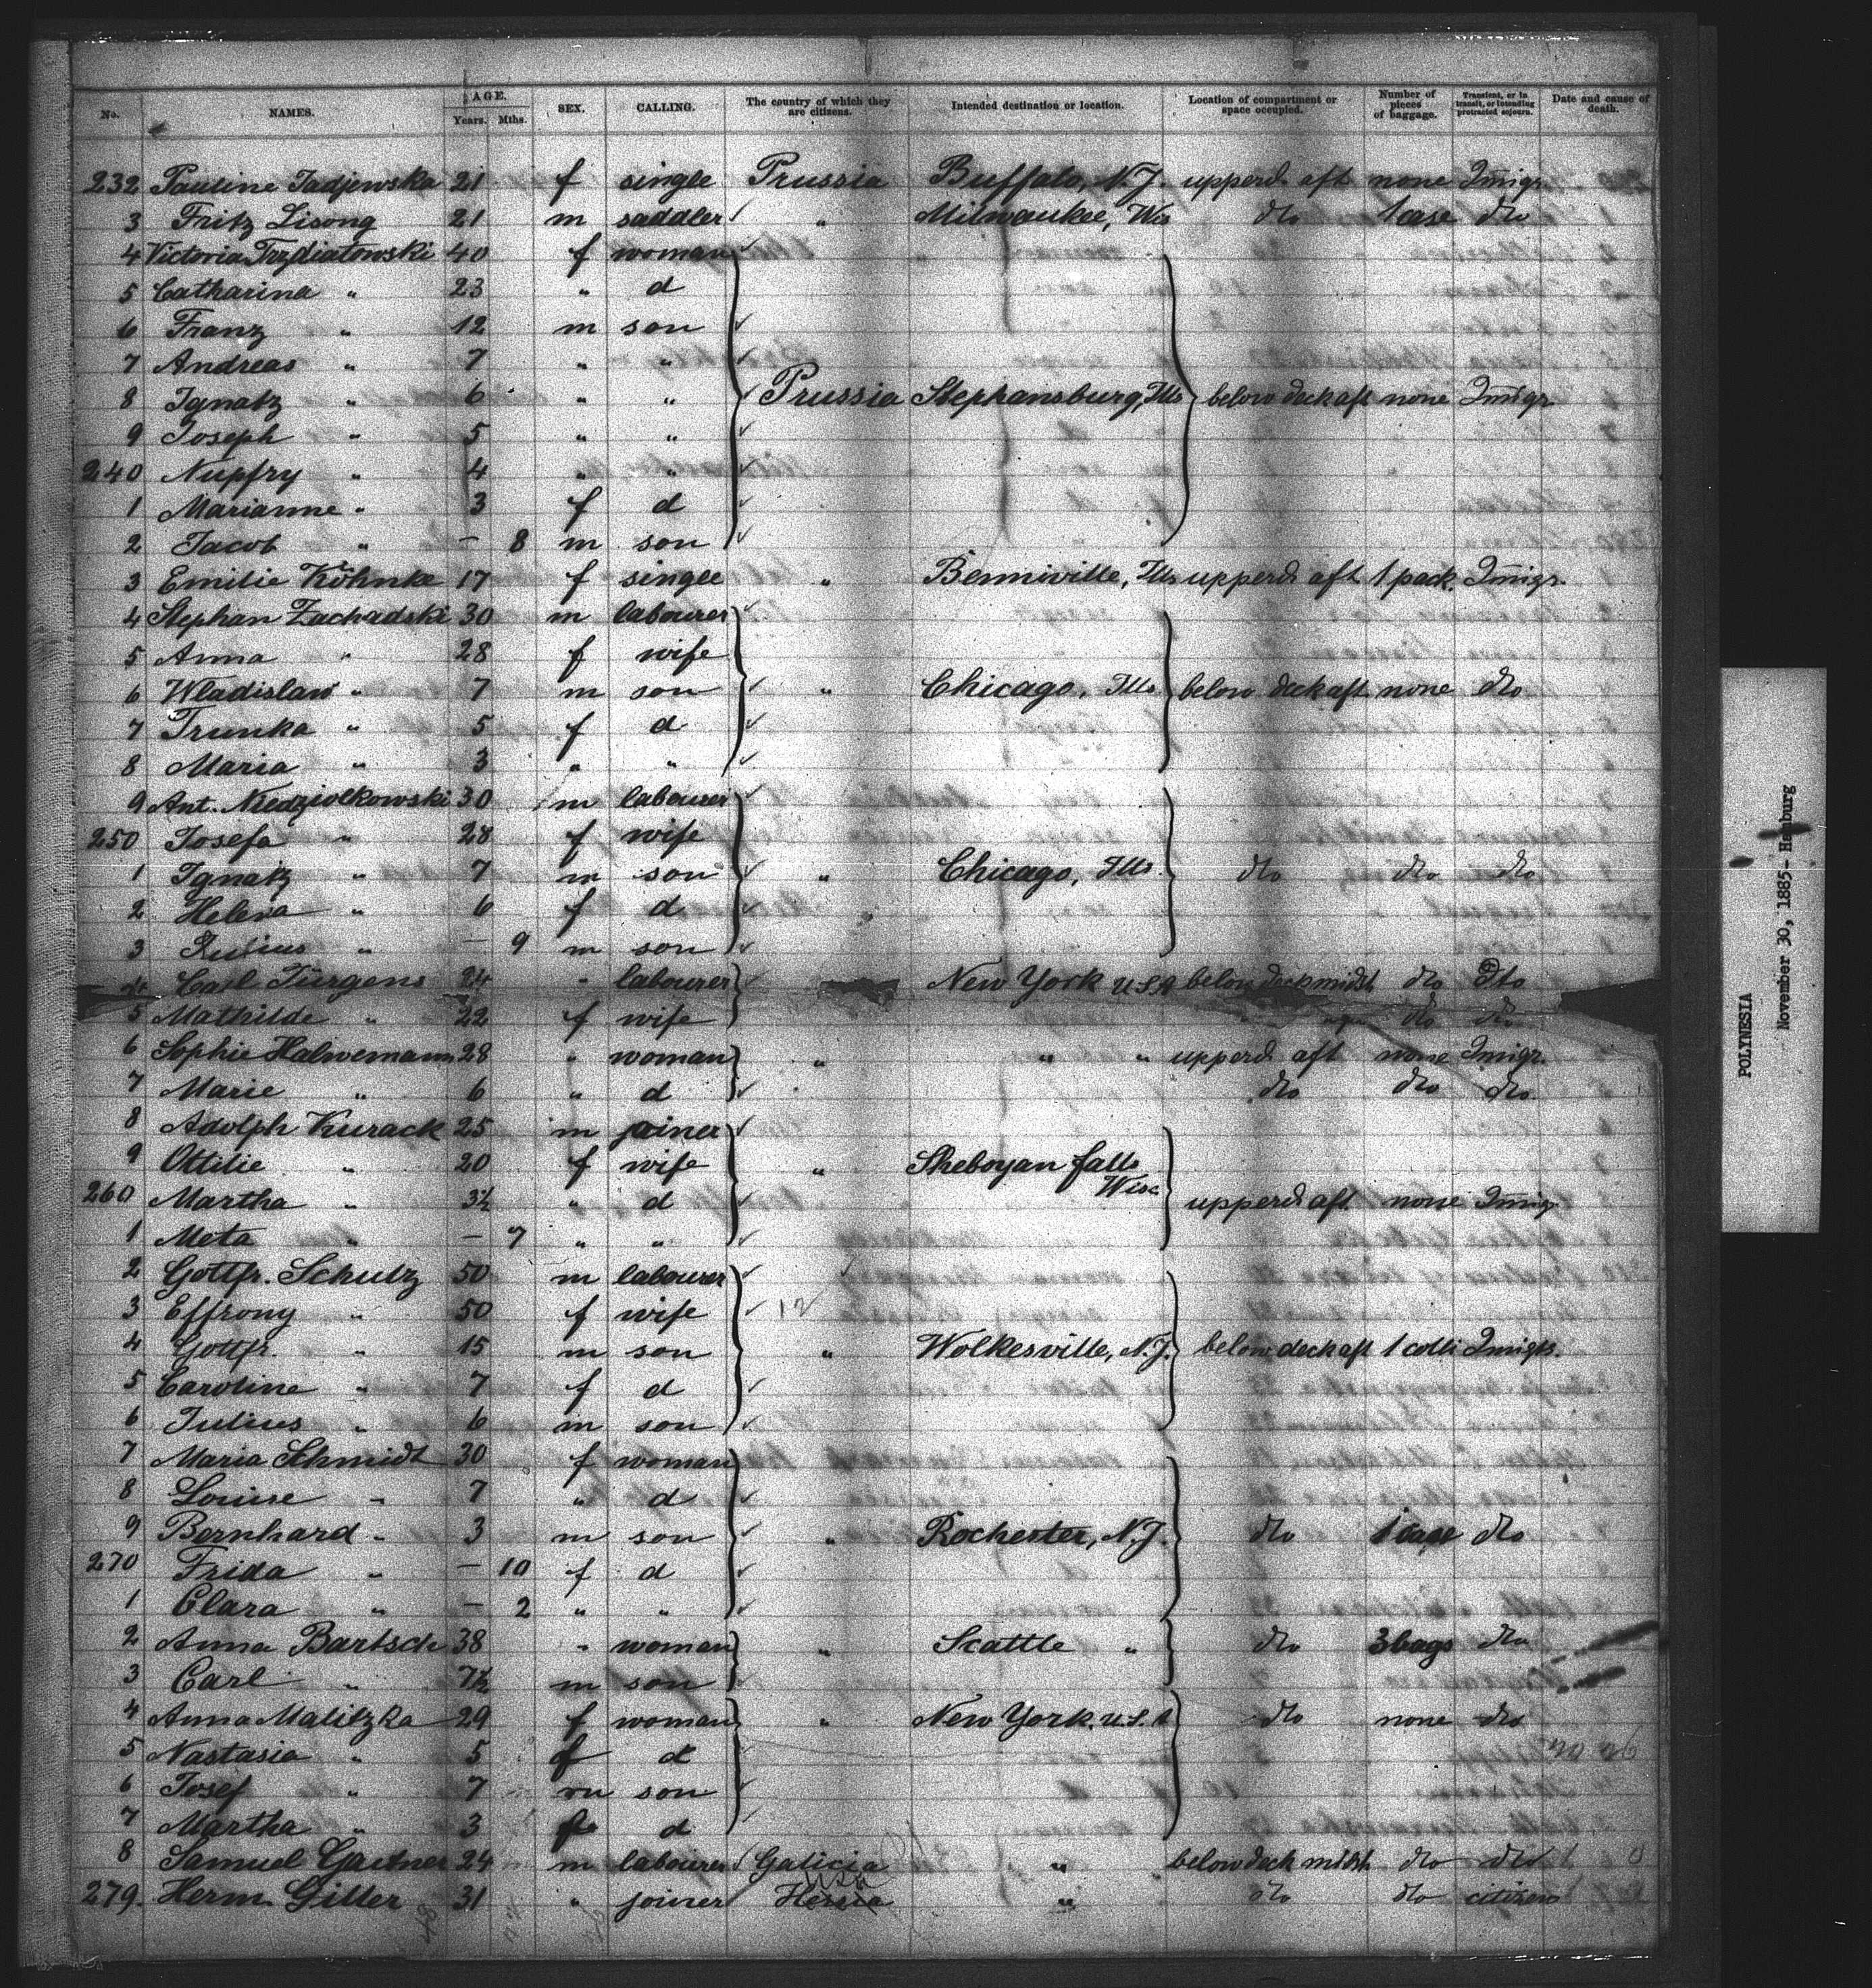 No. NAMES. AGE. Years. Mths. SEX. CALLING. The country of which they are citizens. Intended destination or location. Location of compartment or space occupied. Number of pieces of baggage. Transient, or in transit, or intending protracted sojourn. Date and cause of death.
232 Pauline Tadjewska 21 f single Prussia Buffalo, N.J. upperd. aft none Imigr.
3 Fritz Lisong 21 m saddler " Milwaukee, Wis dto 1 case dto
4 Victoria Trzdiatowski 40 f woman
5 Catharina " 23 " d
6 Franz " 12 m son
7 Andreas " 7 " "
8 Ignatz " 6 " " Prussia Stephansburg, Ills below deck aft none Imigr
9 Joseph " 5 " "
240 Nupfry " 4 " "
1 Marianne " 3 f d
2 Jacob " — 8 m son
3 Emilie Köhnke 17 f single " Benniville, Ills upperd. aft 1 pack. Imigr.
4 Stephan Zachadski 30 m labourer
5 Anna " 28 f wife
6 Wladislaw " 7 m son " Chicago, Ills below deck aft none dto
7 Trunka " 5 f d
8 Maria " 3 " "
9 Ant. Niedziolkowski 30 m labourer
250 Josefa " 28 f wife
1 Ignatz " 7 m son " Chicago, Ills. dto dto dto
2 Helena " 6 f d
3 Julius " — 9 m son
4 Carl Jürgens 24 " labourer New York USA below deck midsh dto dto
5 Mathilde " 22 f wife " dto dto
6 Sophie Halwemann 28 " woman " " " upperd. aft none Imigr.
7 Marie " 6 " d dto dto dto
8 Adolph Kurack 25 m joiner
9 Ottilie " 20 f wife " Sheboyan falls
260 Martha " 3½ " d Wisc upperd. aft none Imigr
1 Meta " — 7 " "
2 Gottfr. Schulz 50 m labourer
3 Effrony " 50 f wife 12
4 Gottfr. " 15 m son " Wolkesville, N.J. below deck aft 1 colli Imigrs.
5 Caroline " 7 f d
6 Julius " 6 m son
7 Maria Schmidt 30 f woman
8 Louise " 7 " d
9 Bernhard " 3 m son " Rochester, N.J. dto 1 case dto
270 Frida " — 10 f d
1 Clara " — 2 " "
2 Anna Bartsch 38 " woman " Scattle " dto 3 bags dto
3 Carl " 7½ m son
4 Anna Malitzka 29 f woman " New York. U.S.A dto none dto
5 Nastasia " 5 f d
6 Josef " 7 m son
7 Martha " 3 f d
8 Samuel Gartner 24 m labourer Galicia " below deck midsh dto dto
279. Herm. Gitter 31 " joiner Hessia USA " dto dto citizen
POLYNESIA
November 30, 1885 - Hamburg